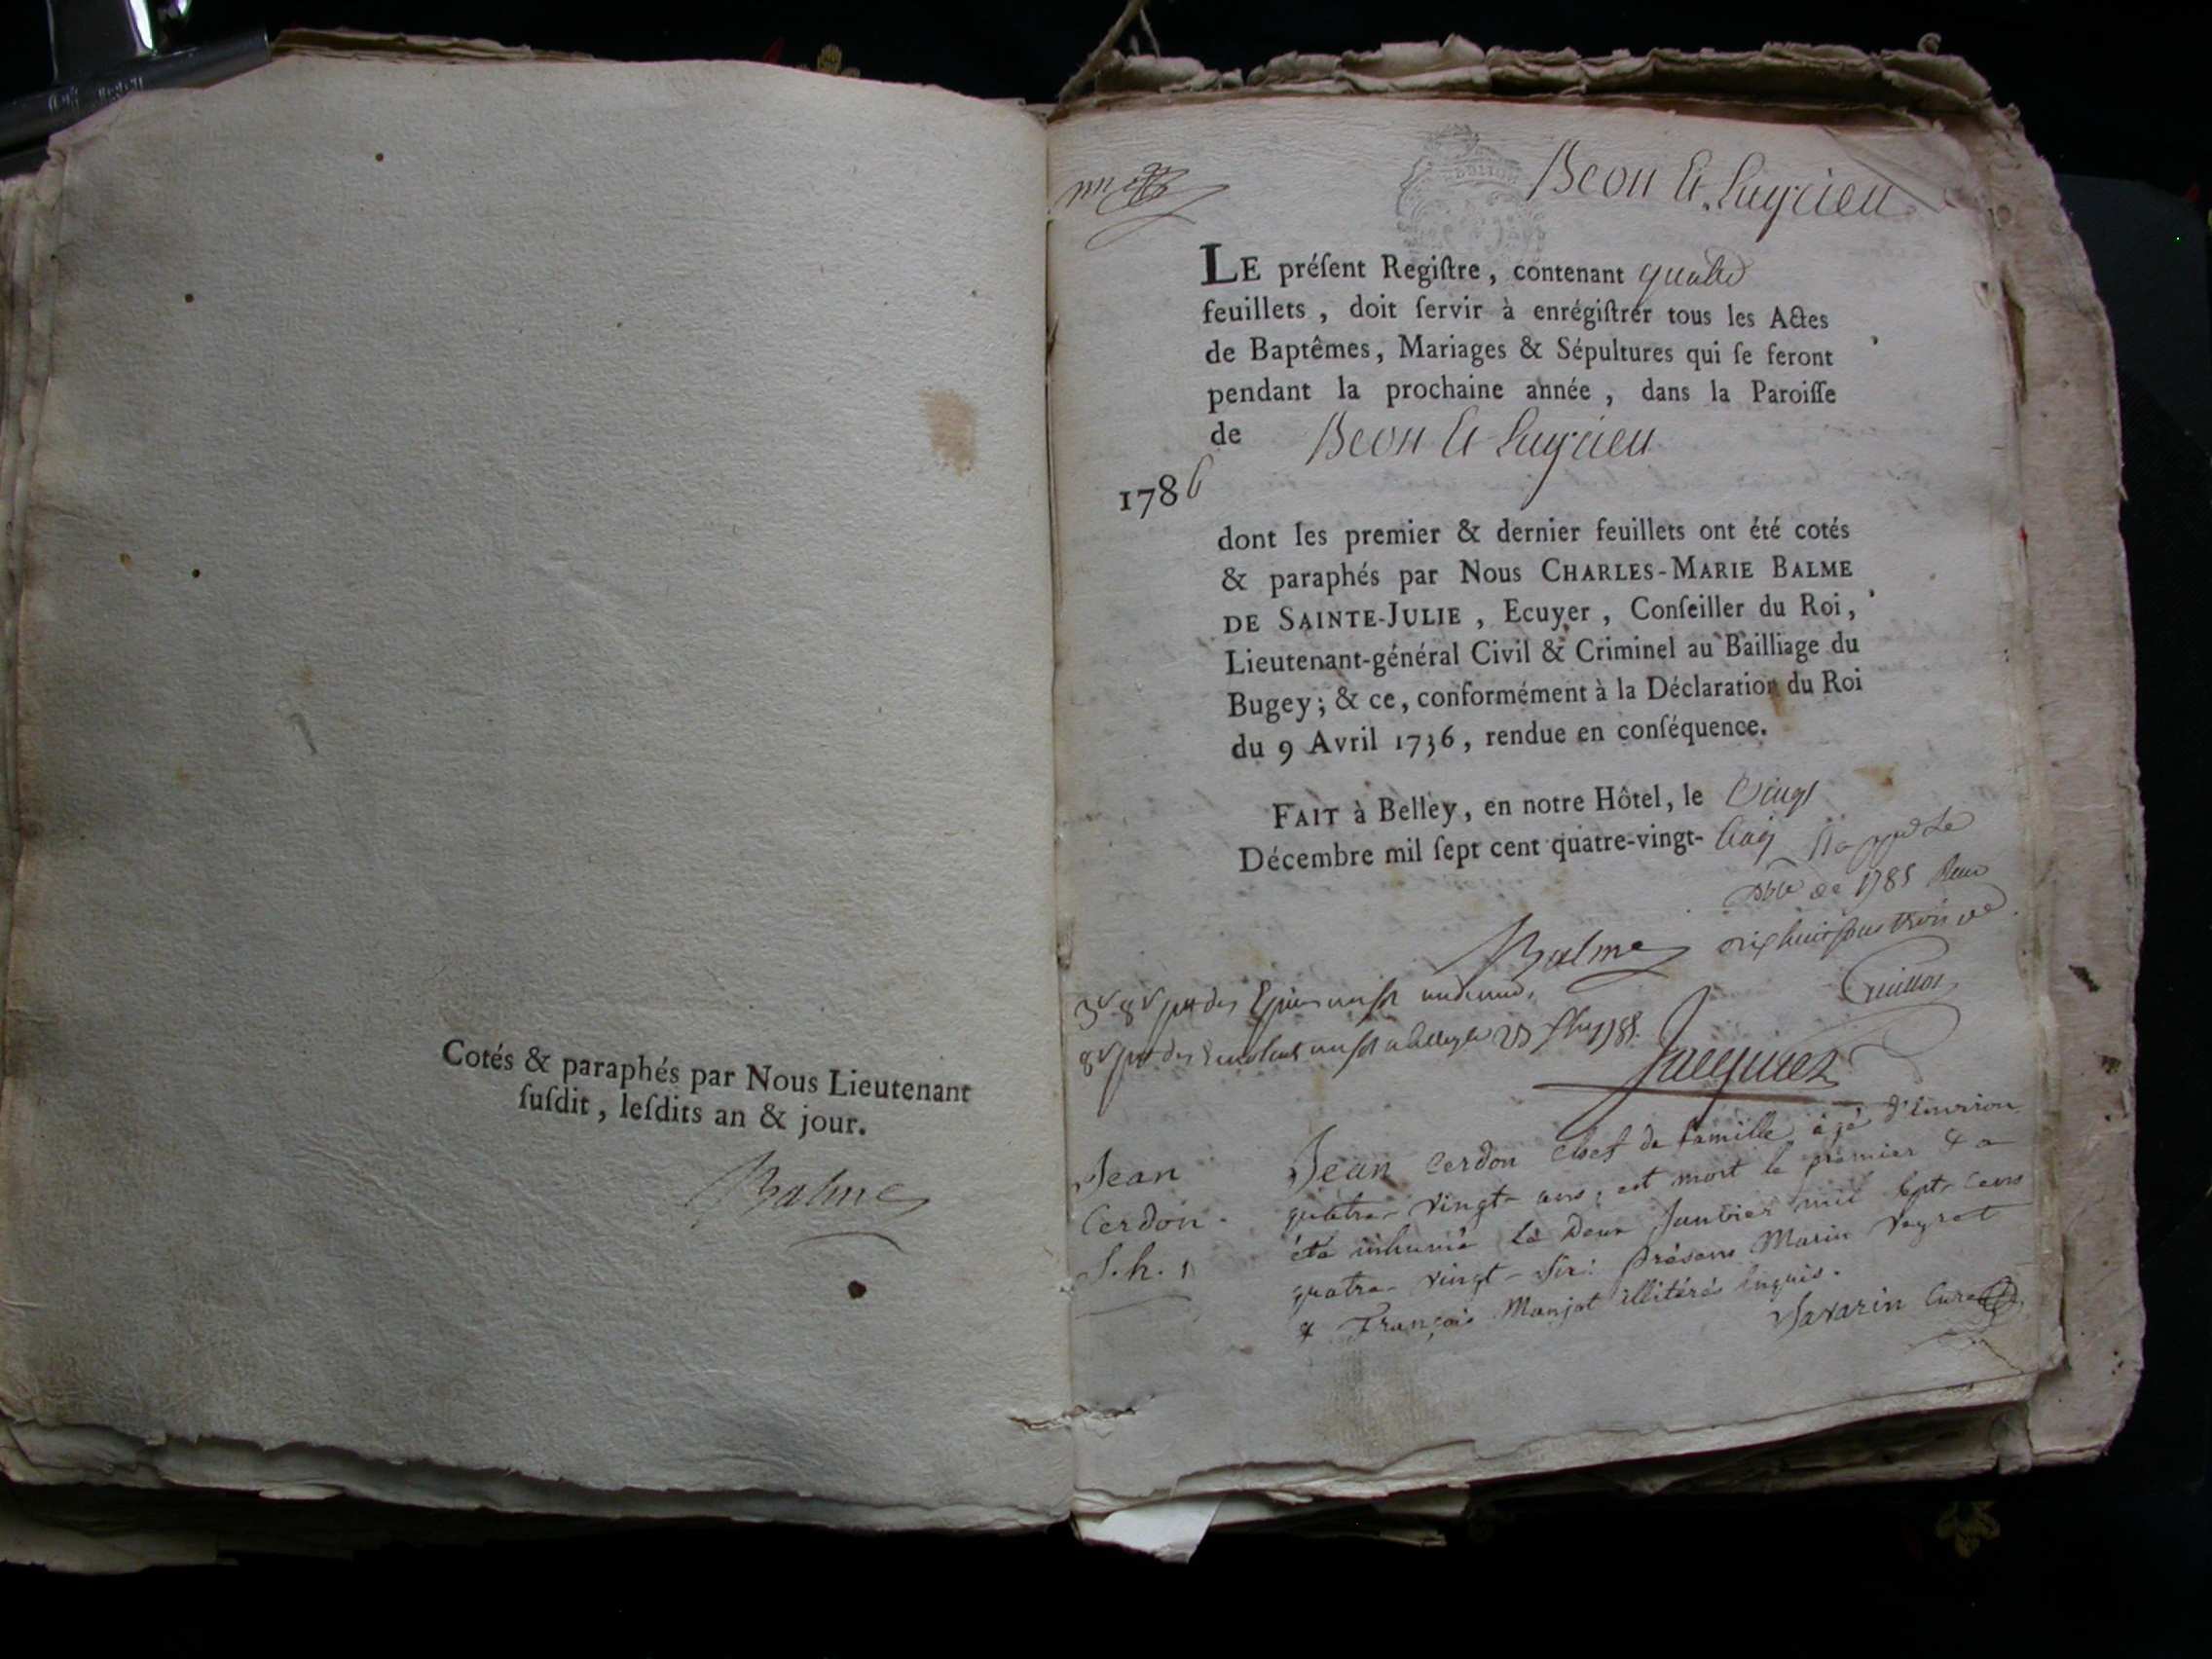 Cotés & paraphés par Nous Lieutenant
ſuſdit, leſdits an & jour.
Balme
Beon Et Luyrieu
LE préſent Regiſtre, contenant quatre
feuillets, doit ſervir à enrégiſtrer tous les Actes
de Baptêmes, Mariages & Sépultures qui ſe feront
pendant la prochaine année, dans la Paroiſſe
de Beon Et Luyrieu
1786
dont les premier & dernier feuillets ont été cotés
& paraphés par Nous CHARLES-MARIE BALME
DE SAINTE-JULIE, Ecuyer, Conſeiller du Roi,
Lieutenant-général Civil & Criminel au Bailliage du
Bugey; & ce, conformément à la Déclaration du Roi
du 9 Avril 1736, rendue en conſéquence.
FAIT à Belley, en notre Hôtel, le Vingt
Décembre mil ſept cent quatre-vingt- Cinq
de 1785
Balme
Jacquier
Jean
Cerdon.
S. h. 1
Jean Cerdon chef de famille âgé d'environ
quatre-vingt ans, est mort le premier & a
été inhumé le Deux Janvier mil sept cens
quatre-vingt-six: présens Marin Veyret
& François Monjot illitérés enquis.
Savarin Curé